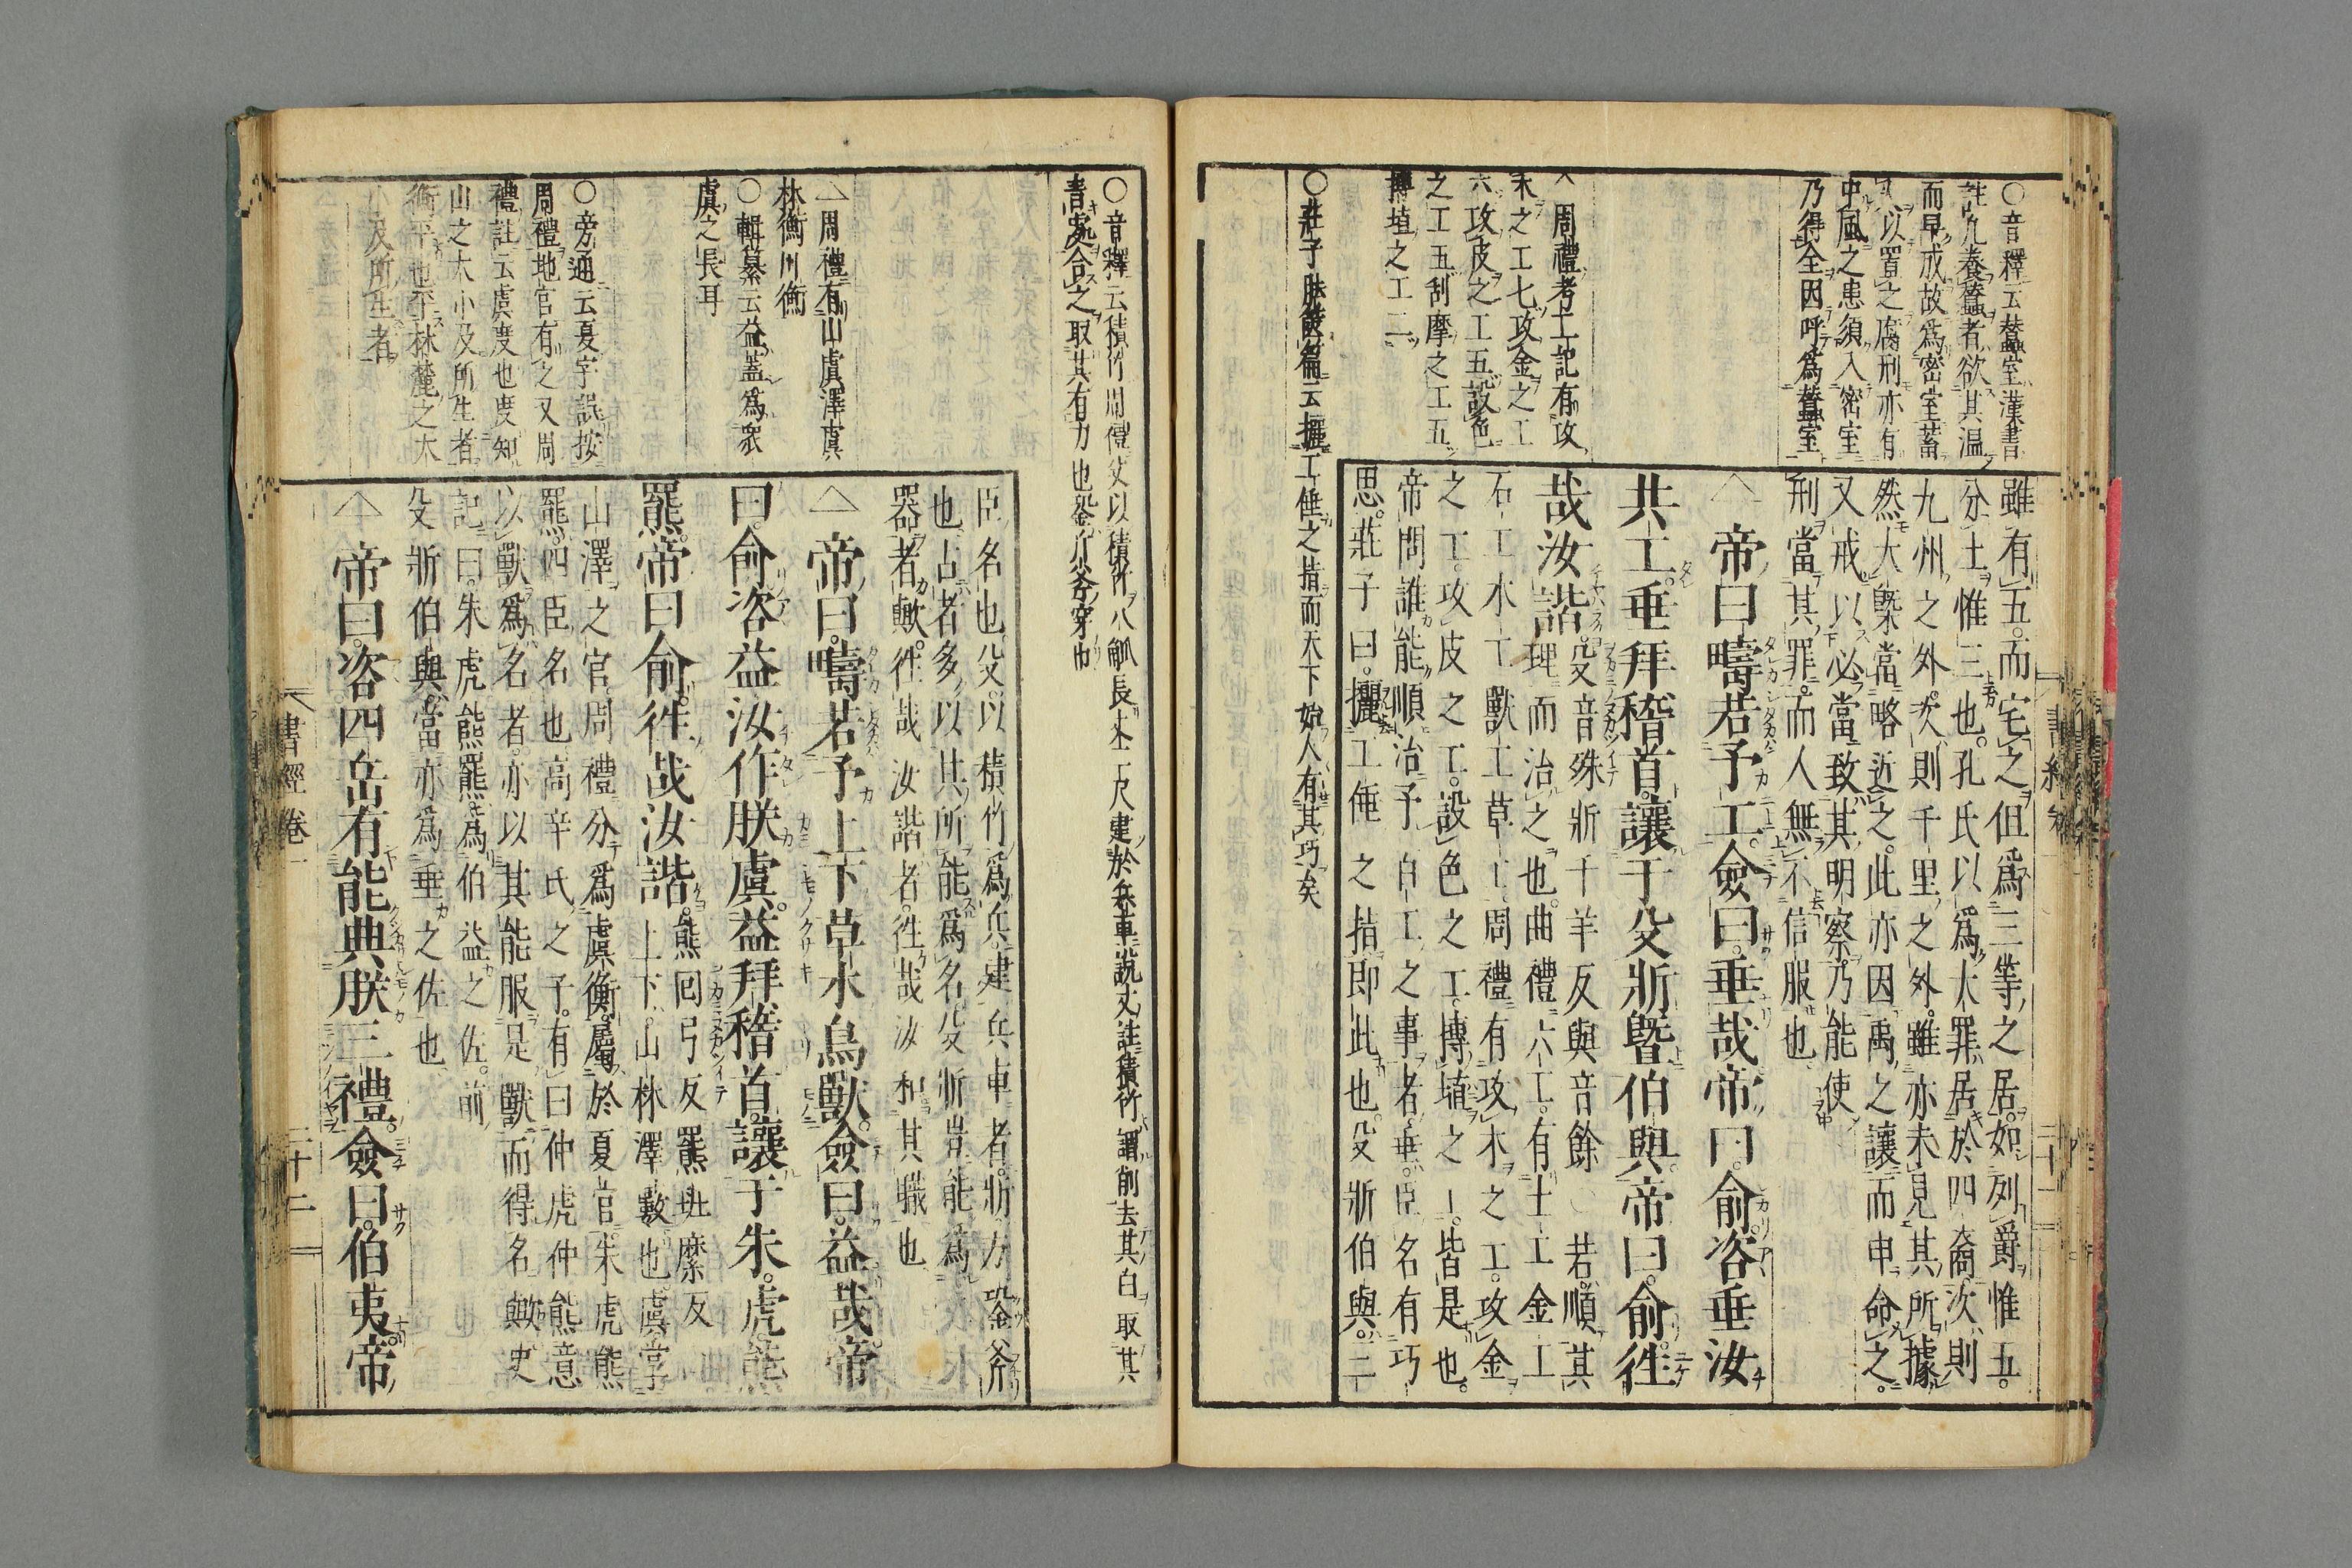 雖有五而宅之但爲三等之居如列爵惟五
分土惟三也孔氏以爲大罪居於四裔次則
九州之外次則千里之外雖亦未見其所據
然大槩當略近之此亦因禹之讓而申命之
又戒以必當致其明察乃能使
刑當其罪而人無不信服也
帝曰疇若予工僉曰垂哉帝曰俞咨垂汝
共工垂拜稽首讓于殳斨曁伯與帝曰俞往
哉汝諧殳音殊斨千羊反與音餘 若順其
理而治之也曲禮六工有土工金工
石工木工獸工草工周禮有攻木之工攻金
之工攻皮之工設色之工搏埴之工皆是也
帝問誰能順治予百工之事者垂臣名有巧
思莊子曰攦工倕之指即此也殳斨伯與二
○音釋云蠶室漢書
註凡養蠶者欲其温
而早成故爲密室蓄
火以置之腐刑亦有
中風之患須入密室
乃得全因呼爲蠶室
周禮考工記有攻
木之工七攻金之工
六攻皮之工五設色
之工五刮摩之工五
搏埴之工二
○莊子胠篋篇云攦工倕之指而天下始人有其巧矣
臣名也殳以積竹爲兵建兵車者斨方銎斧
也古者多以其所能爲名殳斨豈能爲二
器者歟往哉汝諧者往哉汝和其職也
帝曰疇若予上下草木鳥獸僉曰益哉帝
曰俞咨益汝作朕虞益拜稽首讓于朱虎熊
羆帝曰俞往哉汝諧熊囘弓反羆班糜反
上下山林澤藪也虞掌
山澤之官周禮分爲虞衡屬於夏官朱虎熊
羆四臣名也高辛氏之子有曰仲虎仲熊意
以獸爲名者亦以其能服是獸而得名歟史
記曰朱虎熊羆爲伯益之佐前
殳斨伯與當亦爲垂之佐也
帝曰咨四岳有能典朕三禮僉曰伯夷帝
○音釋云積竹周禮殳以積竹八觚長丈二尺建於兵車說文註積竹謂削去其白取其
青處合之取其有力也銎斤斧穿也
周禮有山虞澤虞
林衡川衡
○輯纂云益蓋爲衆
虞之長耳
○旁通云夏字誤按
周禮地官有之又周
禮註云虞度也度知
山之大小及所生者
衡平也平林麓之大
小及所生者
書經卷一
二十二